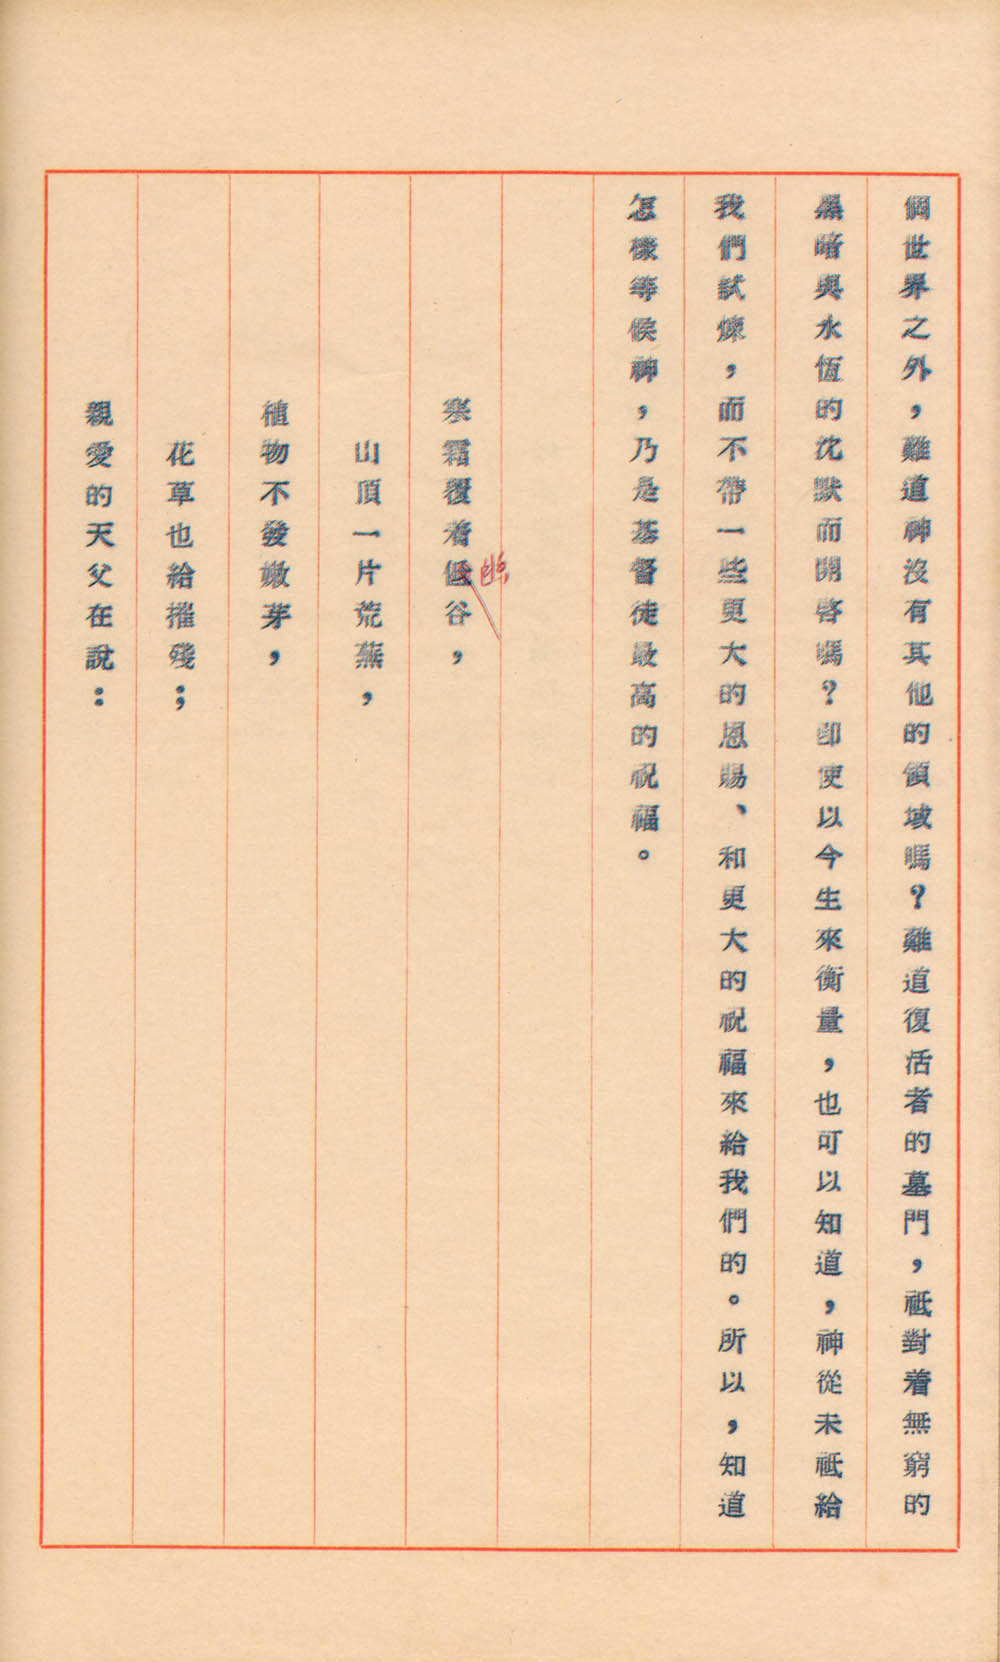 個世界之外，難道神沒有其他的領域嗎？難道復活者的墓門，祗對着無窮的
黑暗與永恆的沈默而開啓嗎？卽使以今生來衡量，也可以知道，神從未祗給
我們試煉，而不帶一些更大的恩賜、和更大的祝福來給我們的。所以，知道
怎樣等候神，乃是基督徒最高的祝福。
寒霜覆着低谷，
幽
山頂一片荒蕪，
植物不發嫩芽，
花草也給摧殘；
親愛的天父在說：